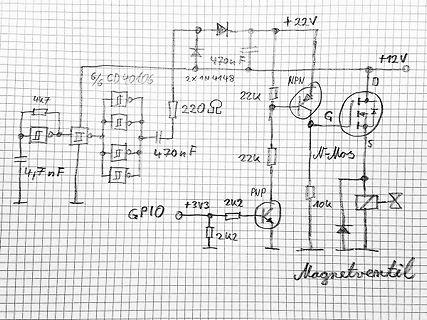 +22V
470nF
+12V
6/6 CD40106
2x1N4148
NPN
D
4k7
22k
G
220Ω
S
N-Mos
470nF
22k
4,7nF
PNP
10k
GPIO
+3V3
2k2
2k2
Magnetventil